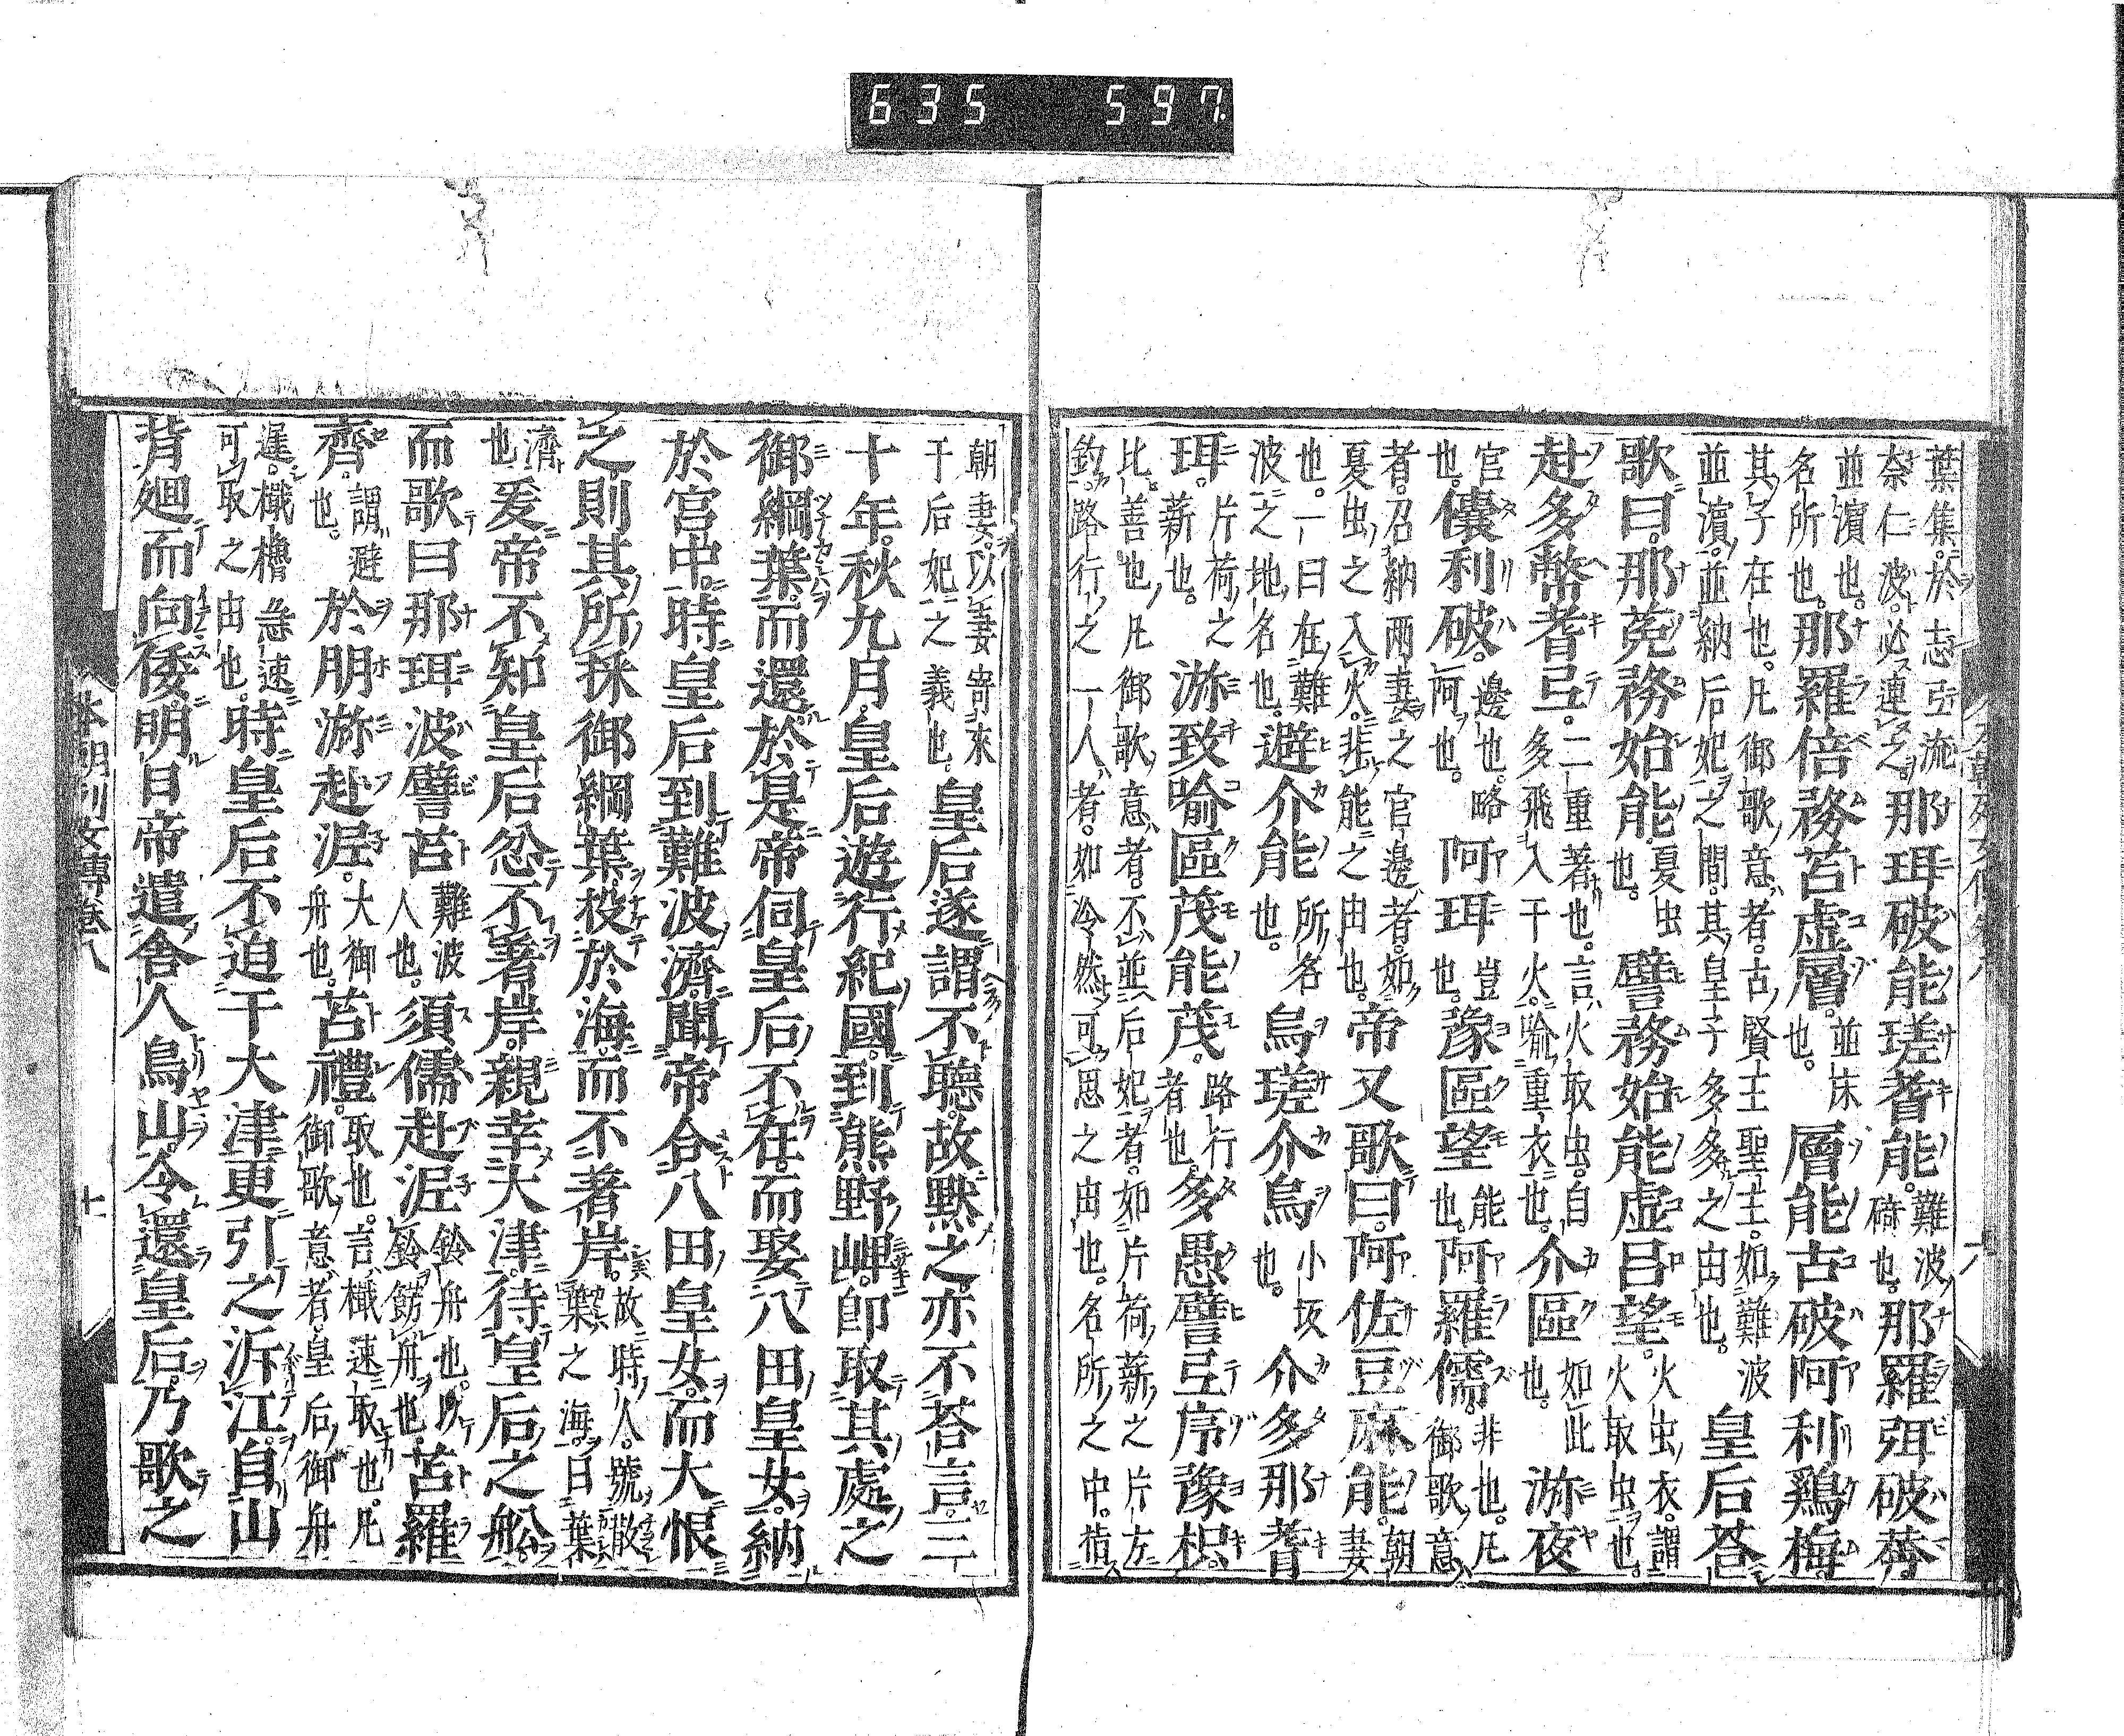 635 597
葉集於志弖淹
奈仁波必連之那珥破能瑳耆能難波
碕也那羅弭破莽
並濱也
名所也那羅倍務苔虚層並床
也層能古破阿利鶏梅
其子在也凡御歌意者古賢王聖主如難波
並濱並納后妃之間其皇子多多之由也皇后荅
歌曰那菟務始能夏虫
也譬務始能虚呂望火虫衣謂
火取虫也
赴多幣耆弖二重著也言火取虫自
多飛入干火喻重衣也介區如此
也游夜
官邊也略
也儾利破阿也阿珥豈
也豫區望能
也阿羅儒非也凡
御歌意
者召納兩妻之官邊者如
夏虫之入火非能之由也帝又歌曰阿佐豆麻能朝
妻
也一曰在難
波之地名也避介能所名
也烏瑳介烏小坂
也介多那耆
珥片荷之
薪也游致喻區茂能茂路行
者也多愚譬弖序豫枳
比善也凡御歌意者不並后妃者如片荷薪之片左
釣路行之一人者如冷然可思之由也名所之中指
朝妻以妻寄來
于后妃之義也皇后遂謂不聽故默之亦不荅言三
十年秋九月皇后遊行紀國到熊野岬即取其處之
御綱葉而還於是帝伺皇后不在而娶八田皇女納
於宮中時皇后到難波濟聞帝合八田皇女而大恨
之則其所採御綱葉投於海而不著岸故時人號散
葉之海曰葉
濟
也爰帝不知皇后忿不著岸親幸大津待皇后之舩
而歌曰那珥波譬苔難波
人也須儒赴泥鈴舟也以
鈴餝舟也苔羅
齊謂避
也於朋游赴泥大御
舟也苔禮取也言檝速取也凡
御歌意者皇后御舟
遲檝櫓急速
可取之由也時皇后不迫于大津更引之泝江自山
背廻而向倭明日帝遣舍人鳥山令還皇后乃歌之
本朝列女傳卷八
十